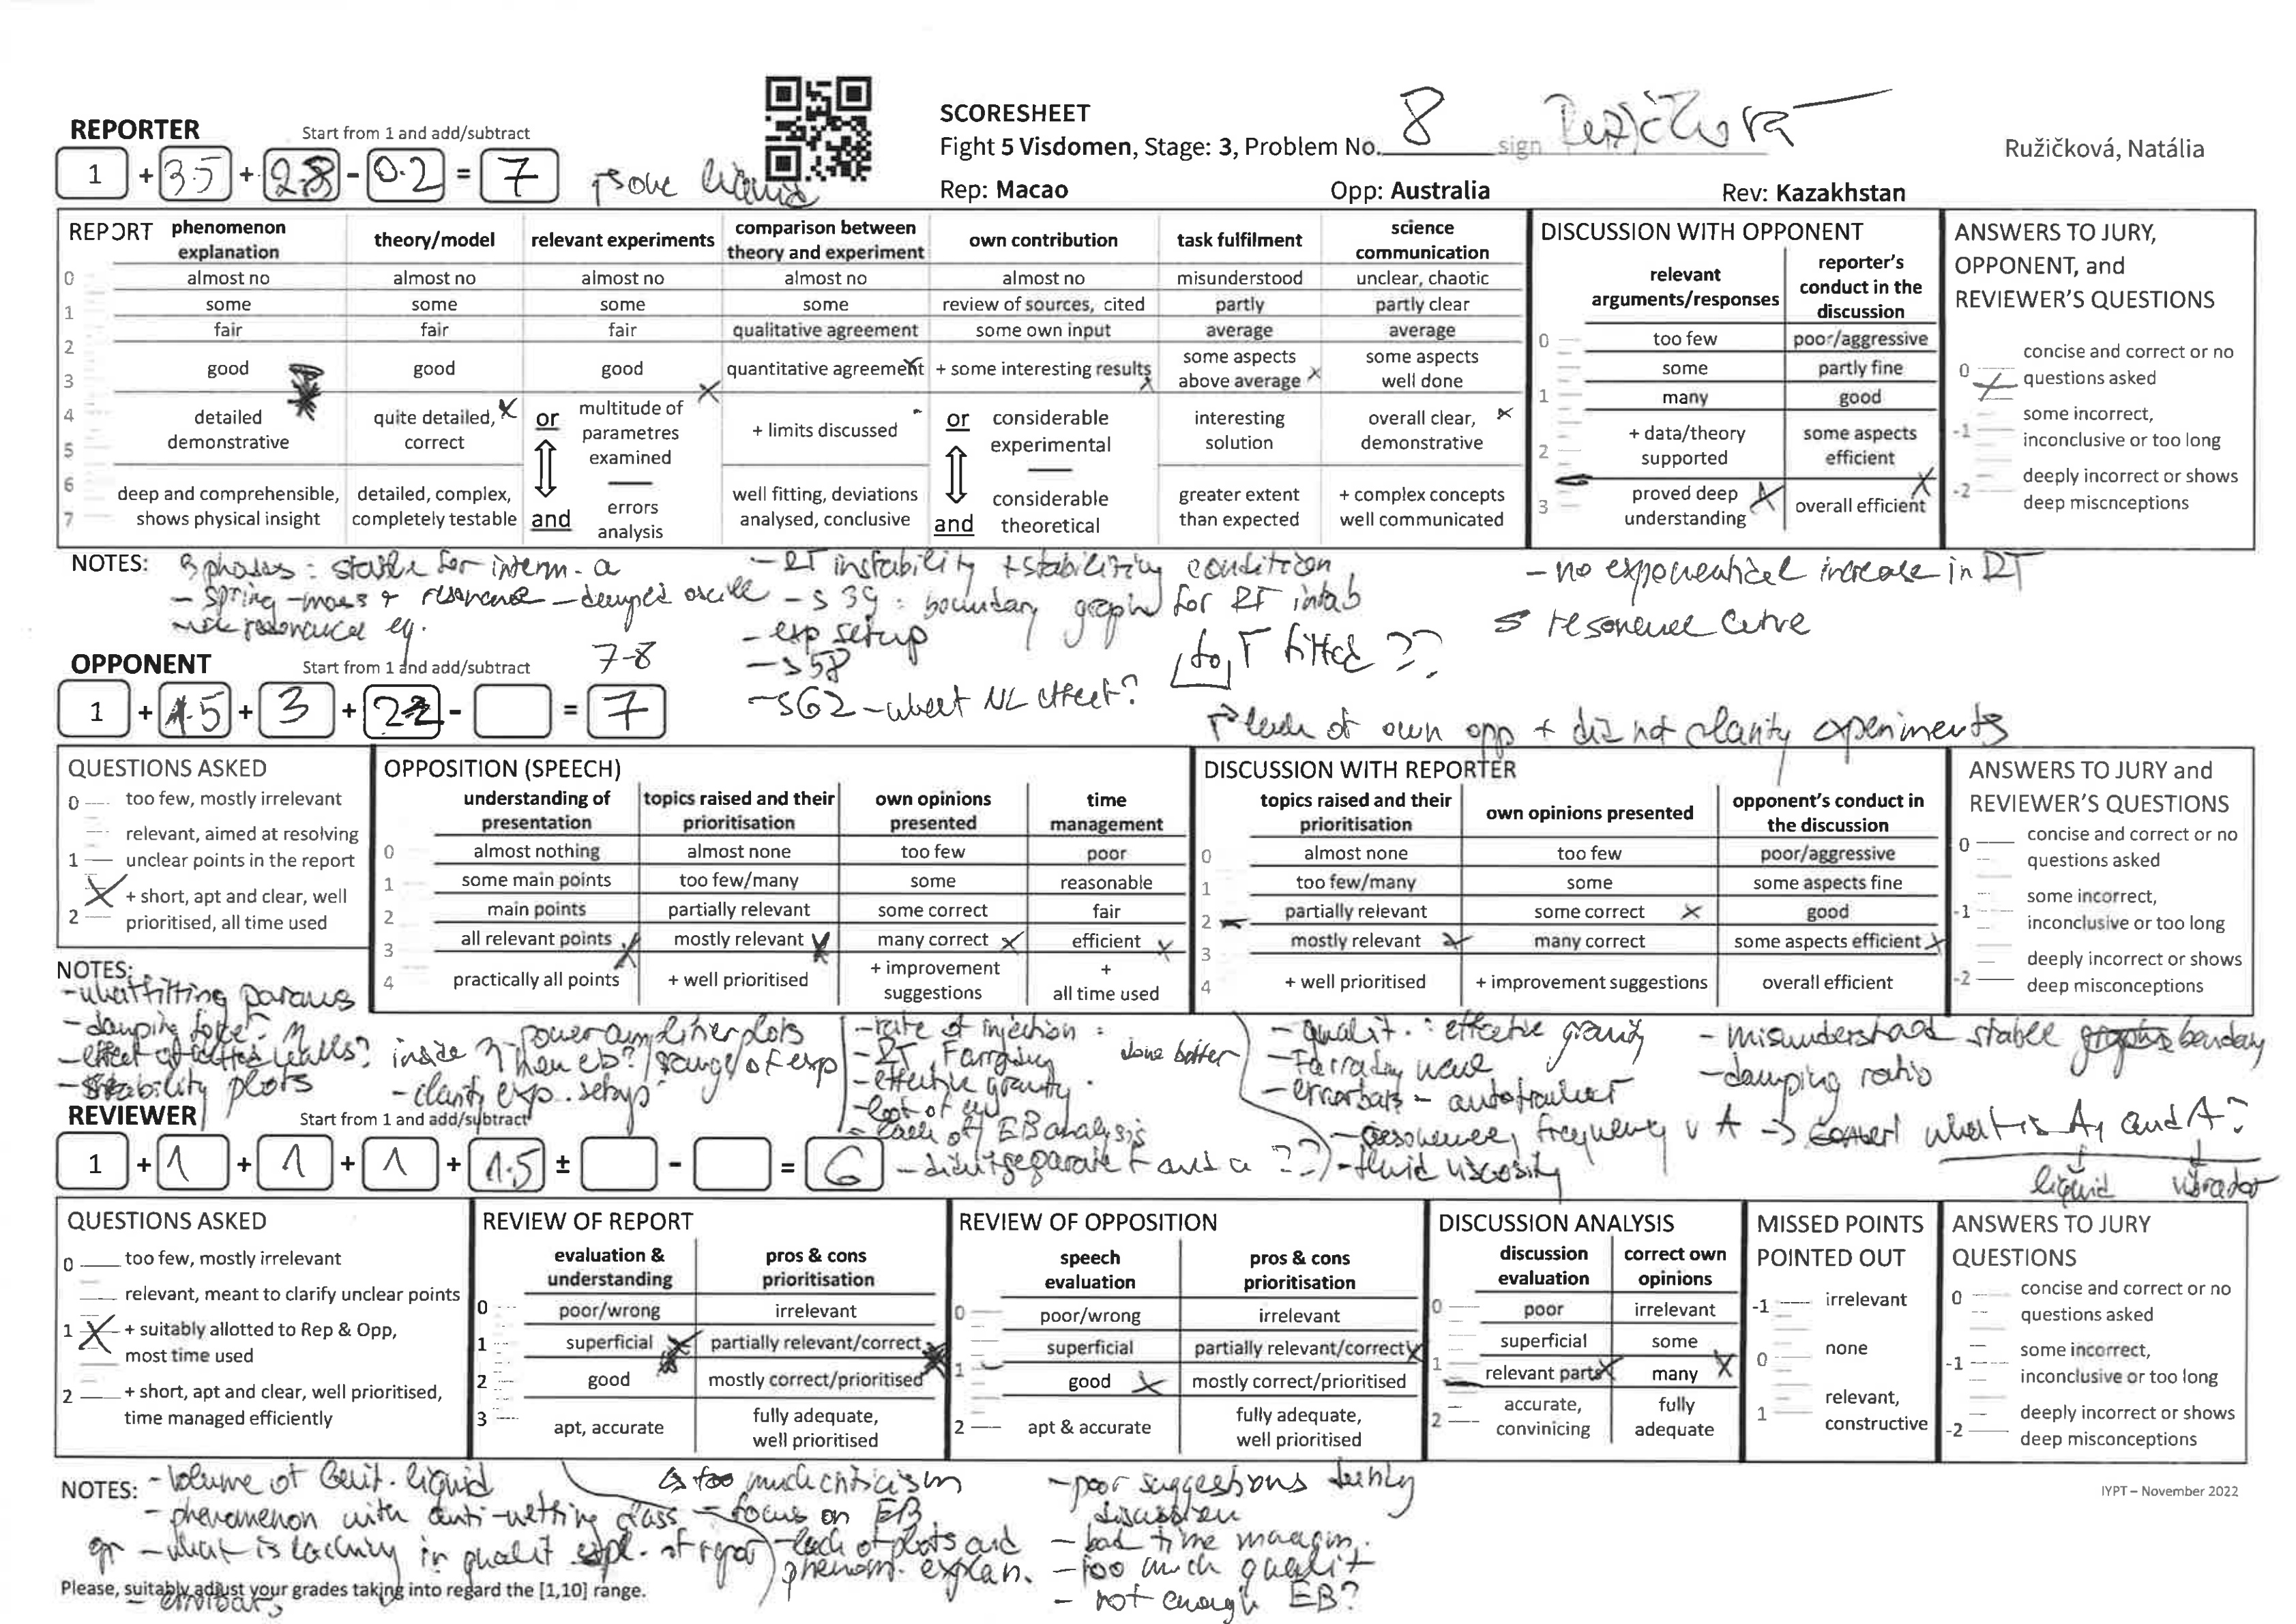 REPORTER
Start from 1 and add/subtract
1 + 3.5 + 2.8 - 0.2 = 7
liquid
SCORESHEET
Fight 5 Visdomen, Stage: 3, Problem No. 8 sign
Ružičková, Natália
Rep: Macao
Opp: Australia
Rev: Kazakhstan
REPORT
phenomenon explanation
theory/model
relevant experiments
comparison between theory and experiment
own contribution
task fulfilment
science communication
0
almost no
almost no
almost no
almost no
almost no
misunderstood
unclear, chaotic
1
some
some
some
some
review of sources, cited
partly
partly clear
2
fair
fair
fair
qualitative agreement
some own input
average
average
3
good
good
good
quantitative agreement
+ some interesting results
some aspects above average
some aspects well done
4
5
detailed demonstrative
quite detailed, correct
or
multitude of parametres examined
+ limits discussed
or
considerable experimental
interesting solution
overall clear, demonstrative
6
7
deep and comprehensible, shows physical insight
detailed, complex, completely testable
and
errors analysis
well fitting, deviations analysed, conclusive
and
considerable theoretical
greater extent than expected
+ complex concepts well communicated
DISCUSSION WITH OPPONENT
relevant arguments/responses
reporter's conduct in the discussion
0
too few
poor/aggressive
some
partly fine
1
many
good
2
+ data/theory supported
some aspects efficient
3
proved deep understanding
overall efficient
ANSWERS TO JURY, OPPONENT, and REVIEWER'S QUESTIONS
0
concise and correct or no questions asked
-1
some incorrect, inconclusive or too long
-2
deeply incorrect or shows deep miscnceptions
NOTES:
3 phases: stable for interm. a
- spring-mass + resonance - damped oscill
eq.
- RT instability + stabilizing condition
- s 39: boundary graph for RT instab
- exp setup
- s58
- s62 - what NL effect?
fitted ??
- no exponential increase in RT
resonance curve
OPPONENT
Start from 1 and add/subtract
7-8
1 + 1.5 + 3 + 2.2 - = 7
lack of own opp + did not clarity experiments
QUESTIONS ASKED
0
too few, mostly irrelevant
1
relevant, aimed at resolving unclear points in the report
2
+ short, apt and clear, well prioritised, all time used
OPPOSITION (SPEECH)
understanding of presentation
topics raised and their prioritisation
own opinions presented
time management
0
almost nothing
almost none
too few
poor
1
some main points
too few/many
some
reasonable
2
main points
partially relevant
some correct
fair
3
all relevant points
mostly relevant
many correct
efficient
4
practically all points
+ well prioritised
+ improvement suggestions
+ all time used
DISCUSSION WITH REPORTER
topics raised and their prioritisation
own opinions presented
opponent's conduct in the discussion
0
almost none
too few
poor/aggressive
1
too few/many
some
some aspects fine
2
partially relevant
some correct
good
3
mostly relevant
many correct
some aspects efficient
4
+ well prioritised
+ improvement suggestions
overall efficient
ANSWERS TO JURY and REVIEWER'S QUESTIONS
0
concise and correct or no questions asked
-1
some incorrect, inconclusive or too long
-2
deeply incorrect or shows deep misconceptions
NOTES:
- what fitting params
- damping force
- effect of walls? inside
- stability plots
- power amplifier plots
range of exp
- clarity exp. setups
- rate of injection:
- RT
- effective gravity
- lack of EB analysis
done better
- qualit.: effective gravity
- Farraday wave
- errorbars - autotracker
- resonance, frequency v A → what is A₁ and A?
- fluid viscosity
- misunderstood stable
- damping ratio
liquid
vibrator
REVIEWER
Start from 1 and add/subtract
1 + 1 + 1 + 1 + 1.5 ± - = 6
QUESTIONS ASKED
0
too few, mostly irrelevant
relevant, meant to clarify unclear points
1
+ suitably allotted to Rep & Opp, most time used
2
+ short, apt and clear, well prioritised, time managed efficiently
REVIEW OF REPORT
evaluation & understanding
pros & cons prioritisation
0
poor/wrong
irrelevant
1
superficial
partially relevant/correct
2
good
mostly correct/prioritised
3
apt, accurate
fully adequate, well prioritised
REVIEW OF OPPOSITION
speech evaluation
pros & cons prioritisation
0
poor/wrong
irrelevant
superficial
partially relevant/correct
1
good
mostly correct/prioritised
2
apt & accurate
fully adequate, well prioritised
DISCUSSION ANALYSIS
discussion evaluation
correct own opinions
0
poor
irrelevant
superficial
some
1
relevant parts
many
2
accurate, convinicing
fully adequate
MISSED POINTS POINTED OUT
-1
irrelevant
0
none
1
relevant, constructive
ANSWERS TO JURY QUESTIONS
0
concise and correct or no questions asked
-1
some incorrect, inconclusive or too long
-2
deeply incorrect or shows deep misconceptions
NOTES:
- volume of liquid
- phenomenon with anti-wetting glass
- what is lacking in qualit expl. of repor
- errorbars
too much criticism
- focus on EB
- lack of plots and phenom. explan.
- poor suggestions
discussion
- bad time managm.
- too much qualit
- not enough EB?
IYPT – November 2022
Please, suitably adjust your grades taking into regard the [1,10] range.